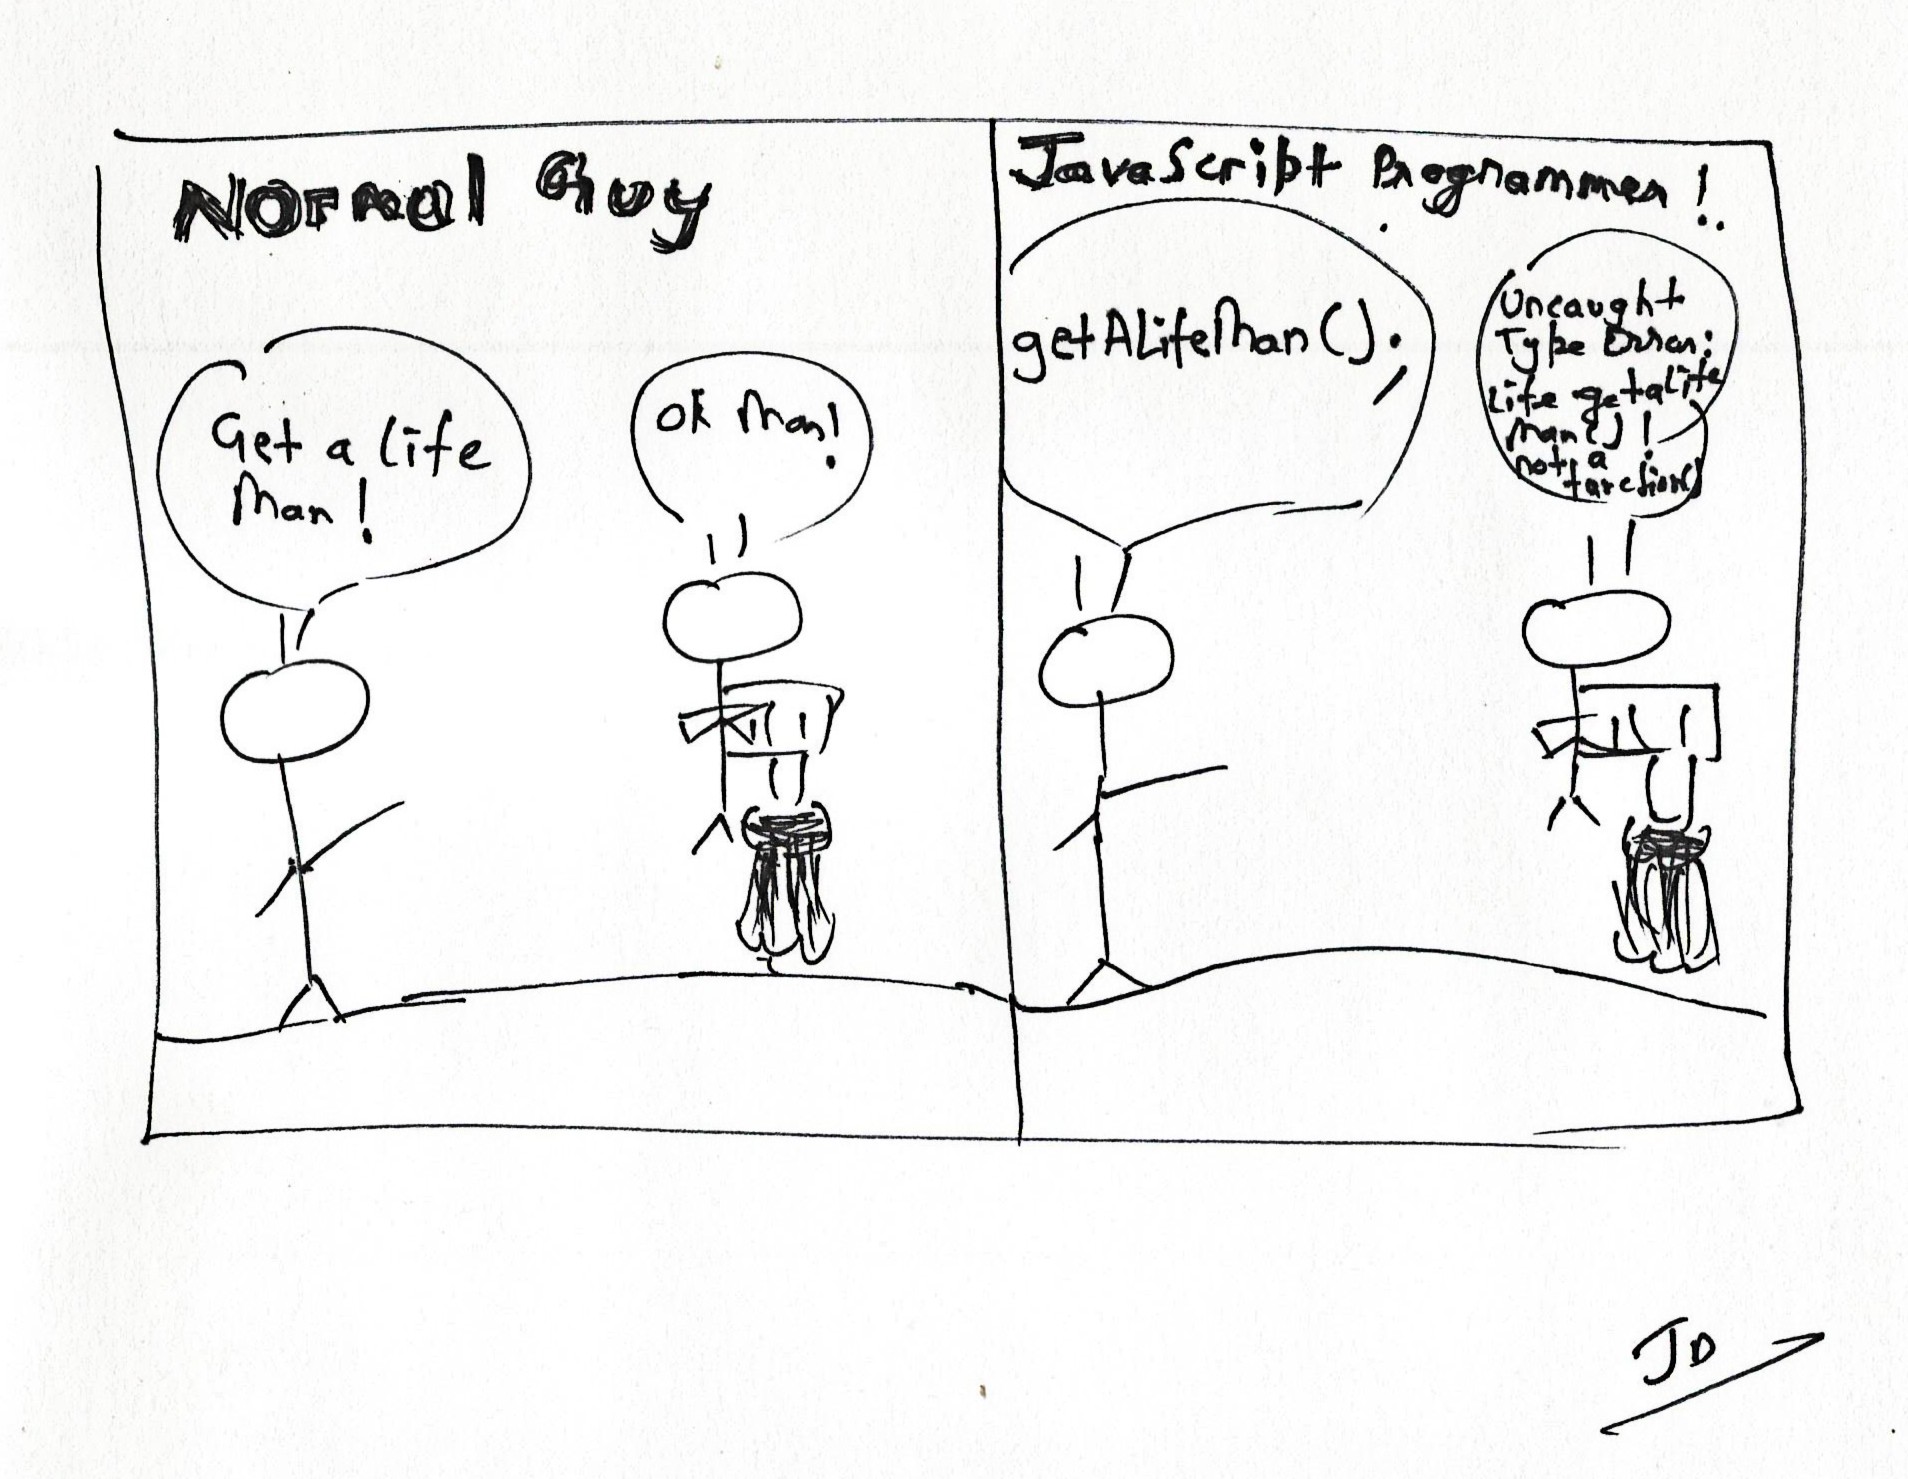 Normal Guy
Get a life
Man!
Ok Man!
JavaScript Programmer!
getALifeMan();
Uncaught
Type Error:
Life getalife
man()!
not a
function()
JD